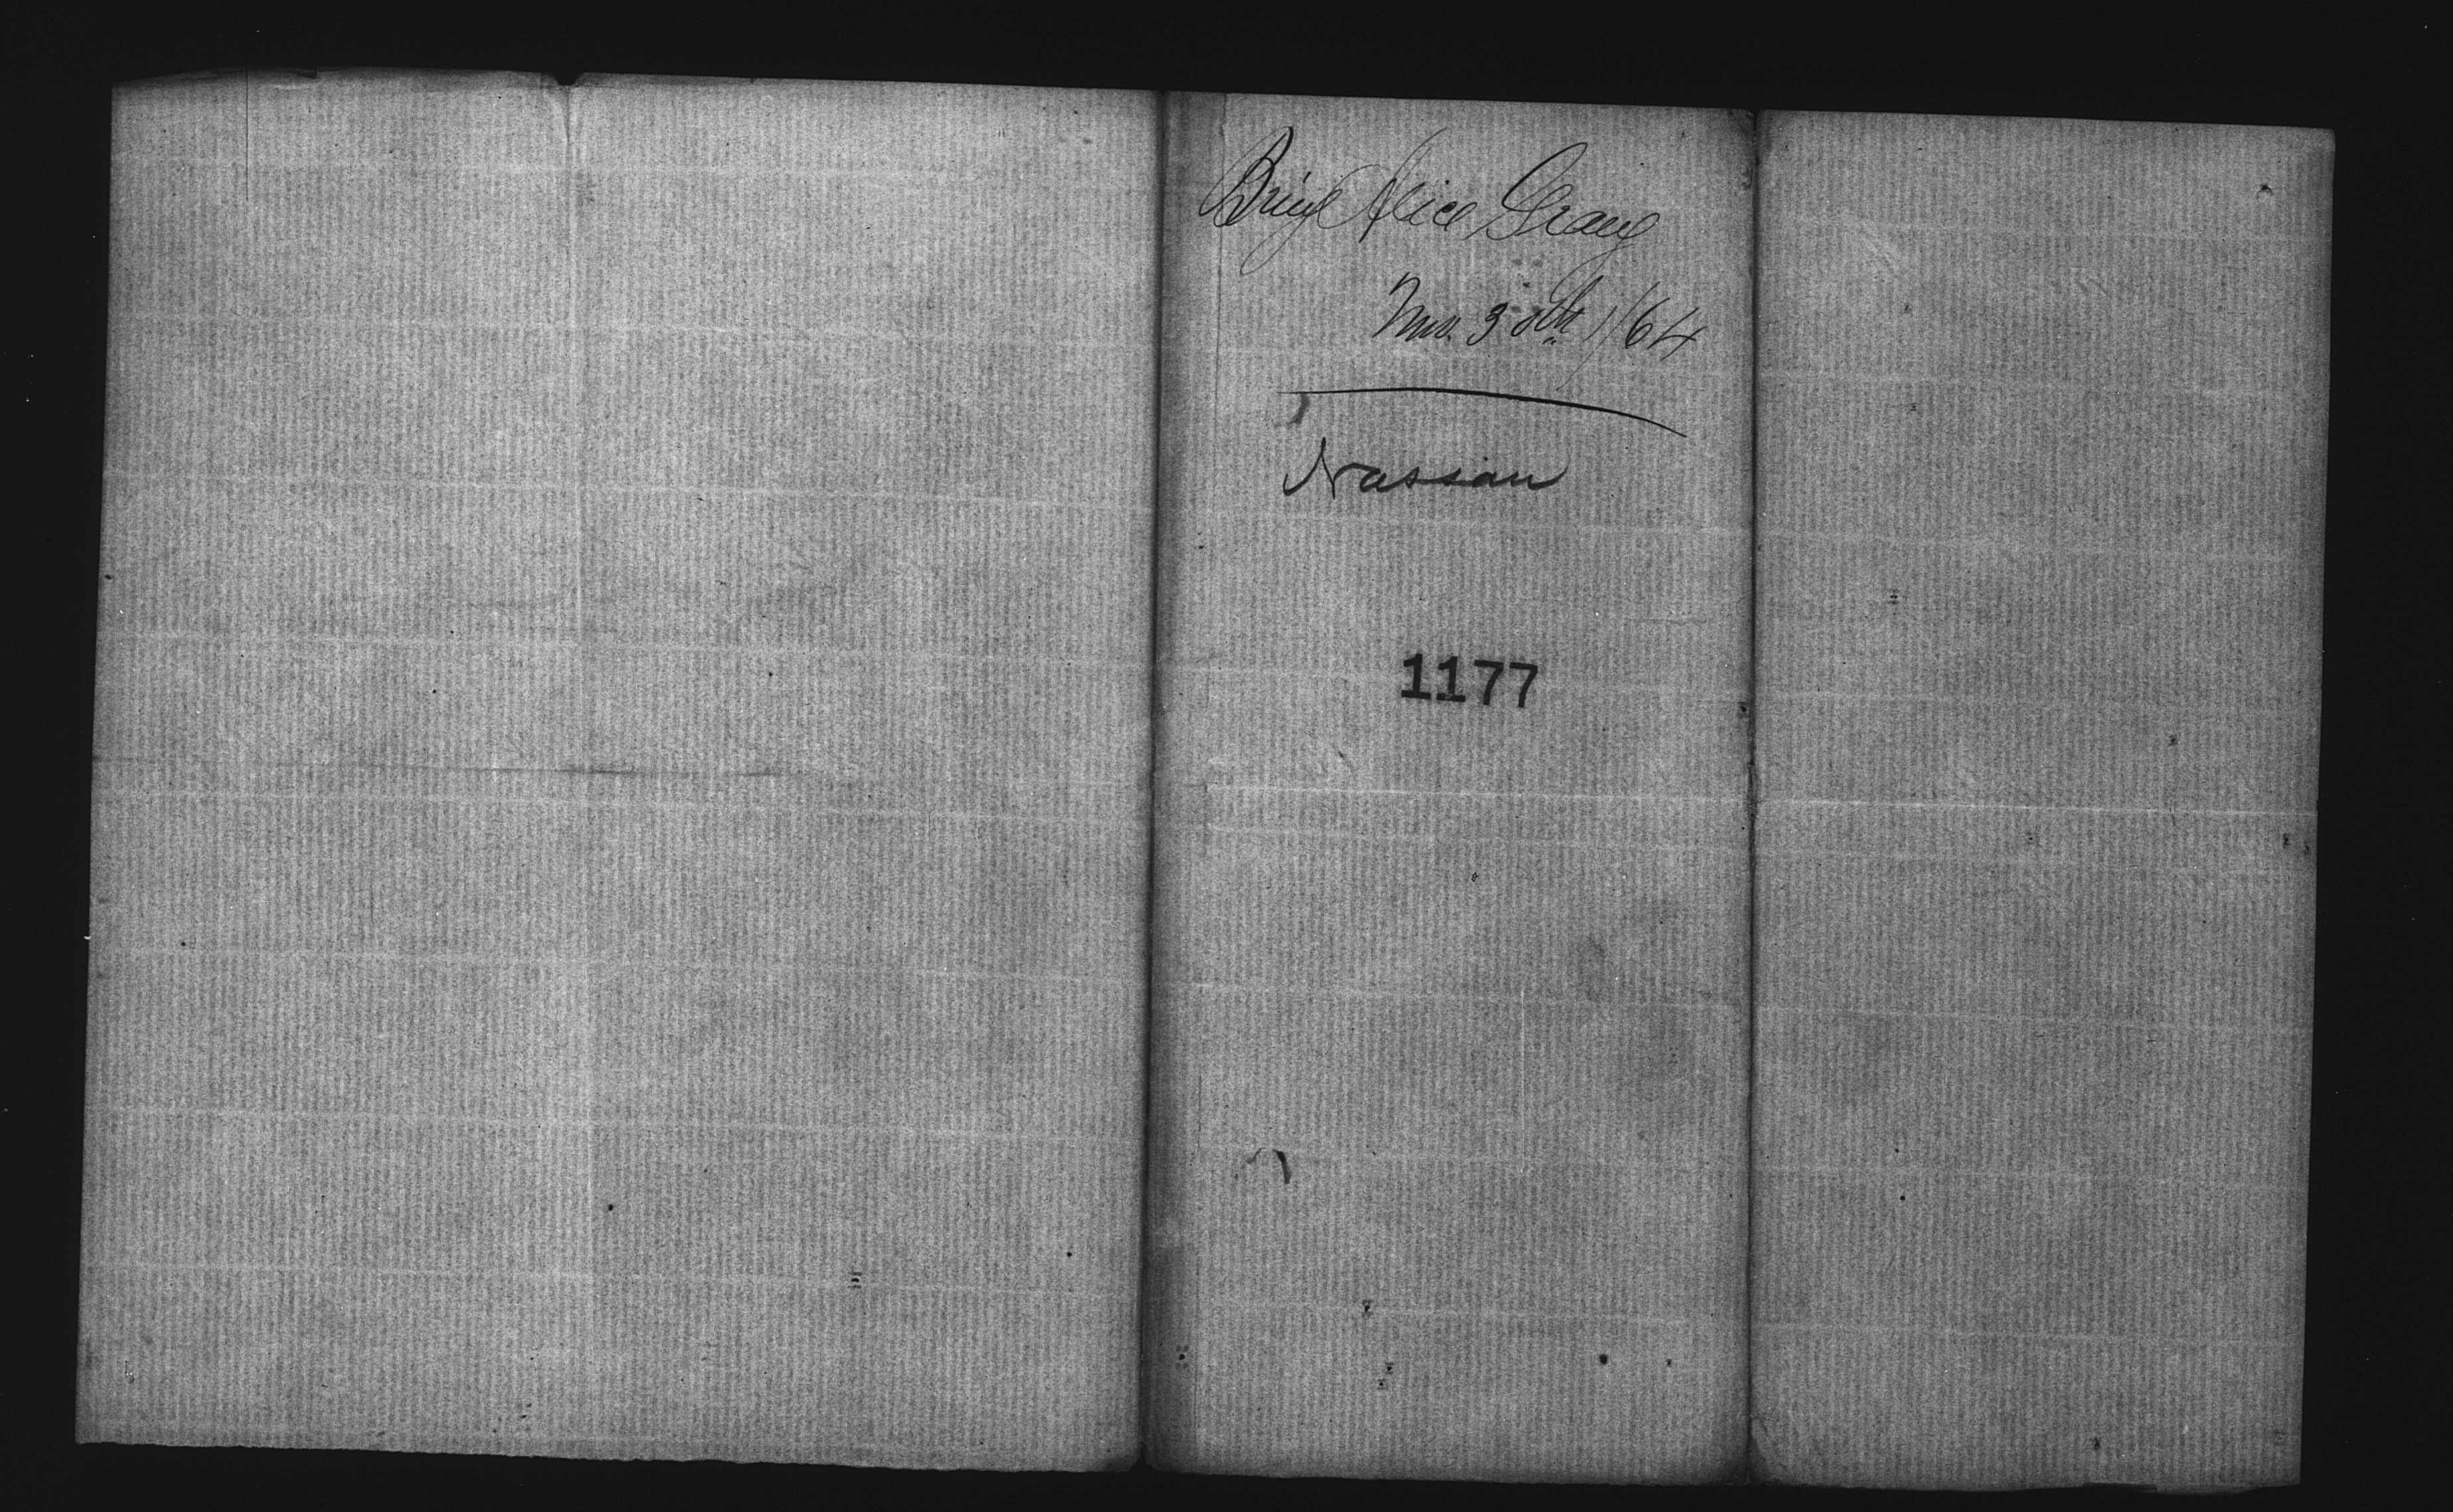 Brig Alice Grang
Nov. 30th //64
Nassau
1177